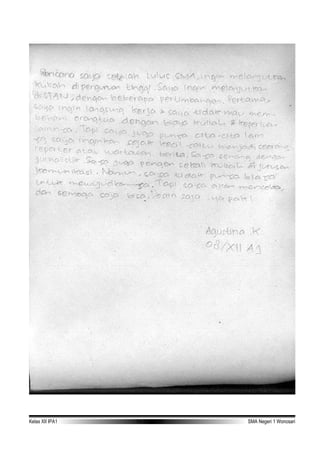 Rencana saya setelah lulus SMA, ingin melanjutkan
kuliah di perguruan tinggi. Saya ingin melanjutkan
di STAN, dengan beberapa pertimbangan. Pertama,
saya ingin langsung kerja & saya tidak mau mem
bebani orangtua dengan biaya kuliah & keperluan
lainnya. Tapi saya juga punya cita-cita lain
yg saya inginkan sejak kecil yaitu menjadi seorang
reporter atau wartawan berita. Saya senang dengan
jurnalistik. Saya juga pengen sekali kuliah di jurusan
komunikasi. Namun, saya tidak punya biaya
untuk mewujudkannya. Tapi saya akan mencoba,
dan semoga saya bisa. saja ya pak!
Agustina .K
08/XII A1
Kelas XII IPA1
SMA Negeri 1 Wonosari